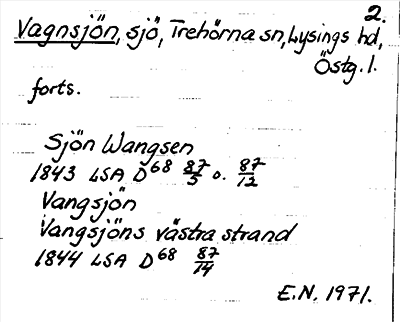 2.
Vagnsjön, sjö, Trehörna sn, Lysings hd,
Östg. l.
forts.
Sjön Wangsen
1843 LSA D68 87/5 o. 87/12
Vangsjön
Vangsjöns västra strand
1844 LSA D68 87/14
E.N. 1971.